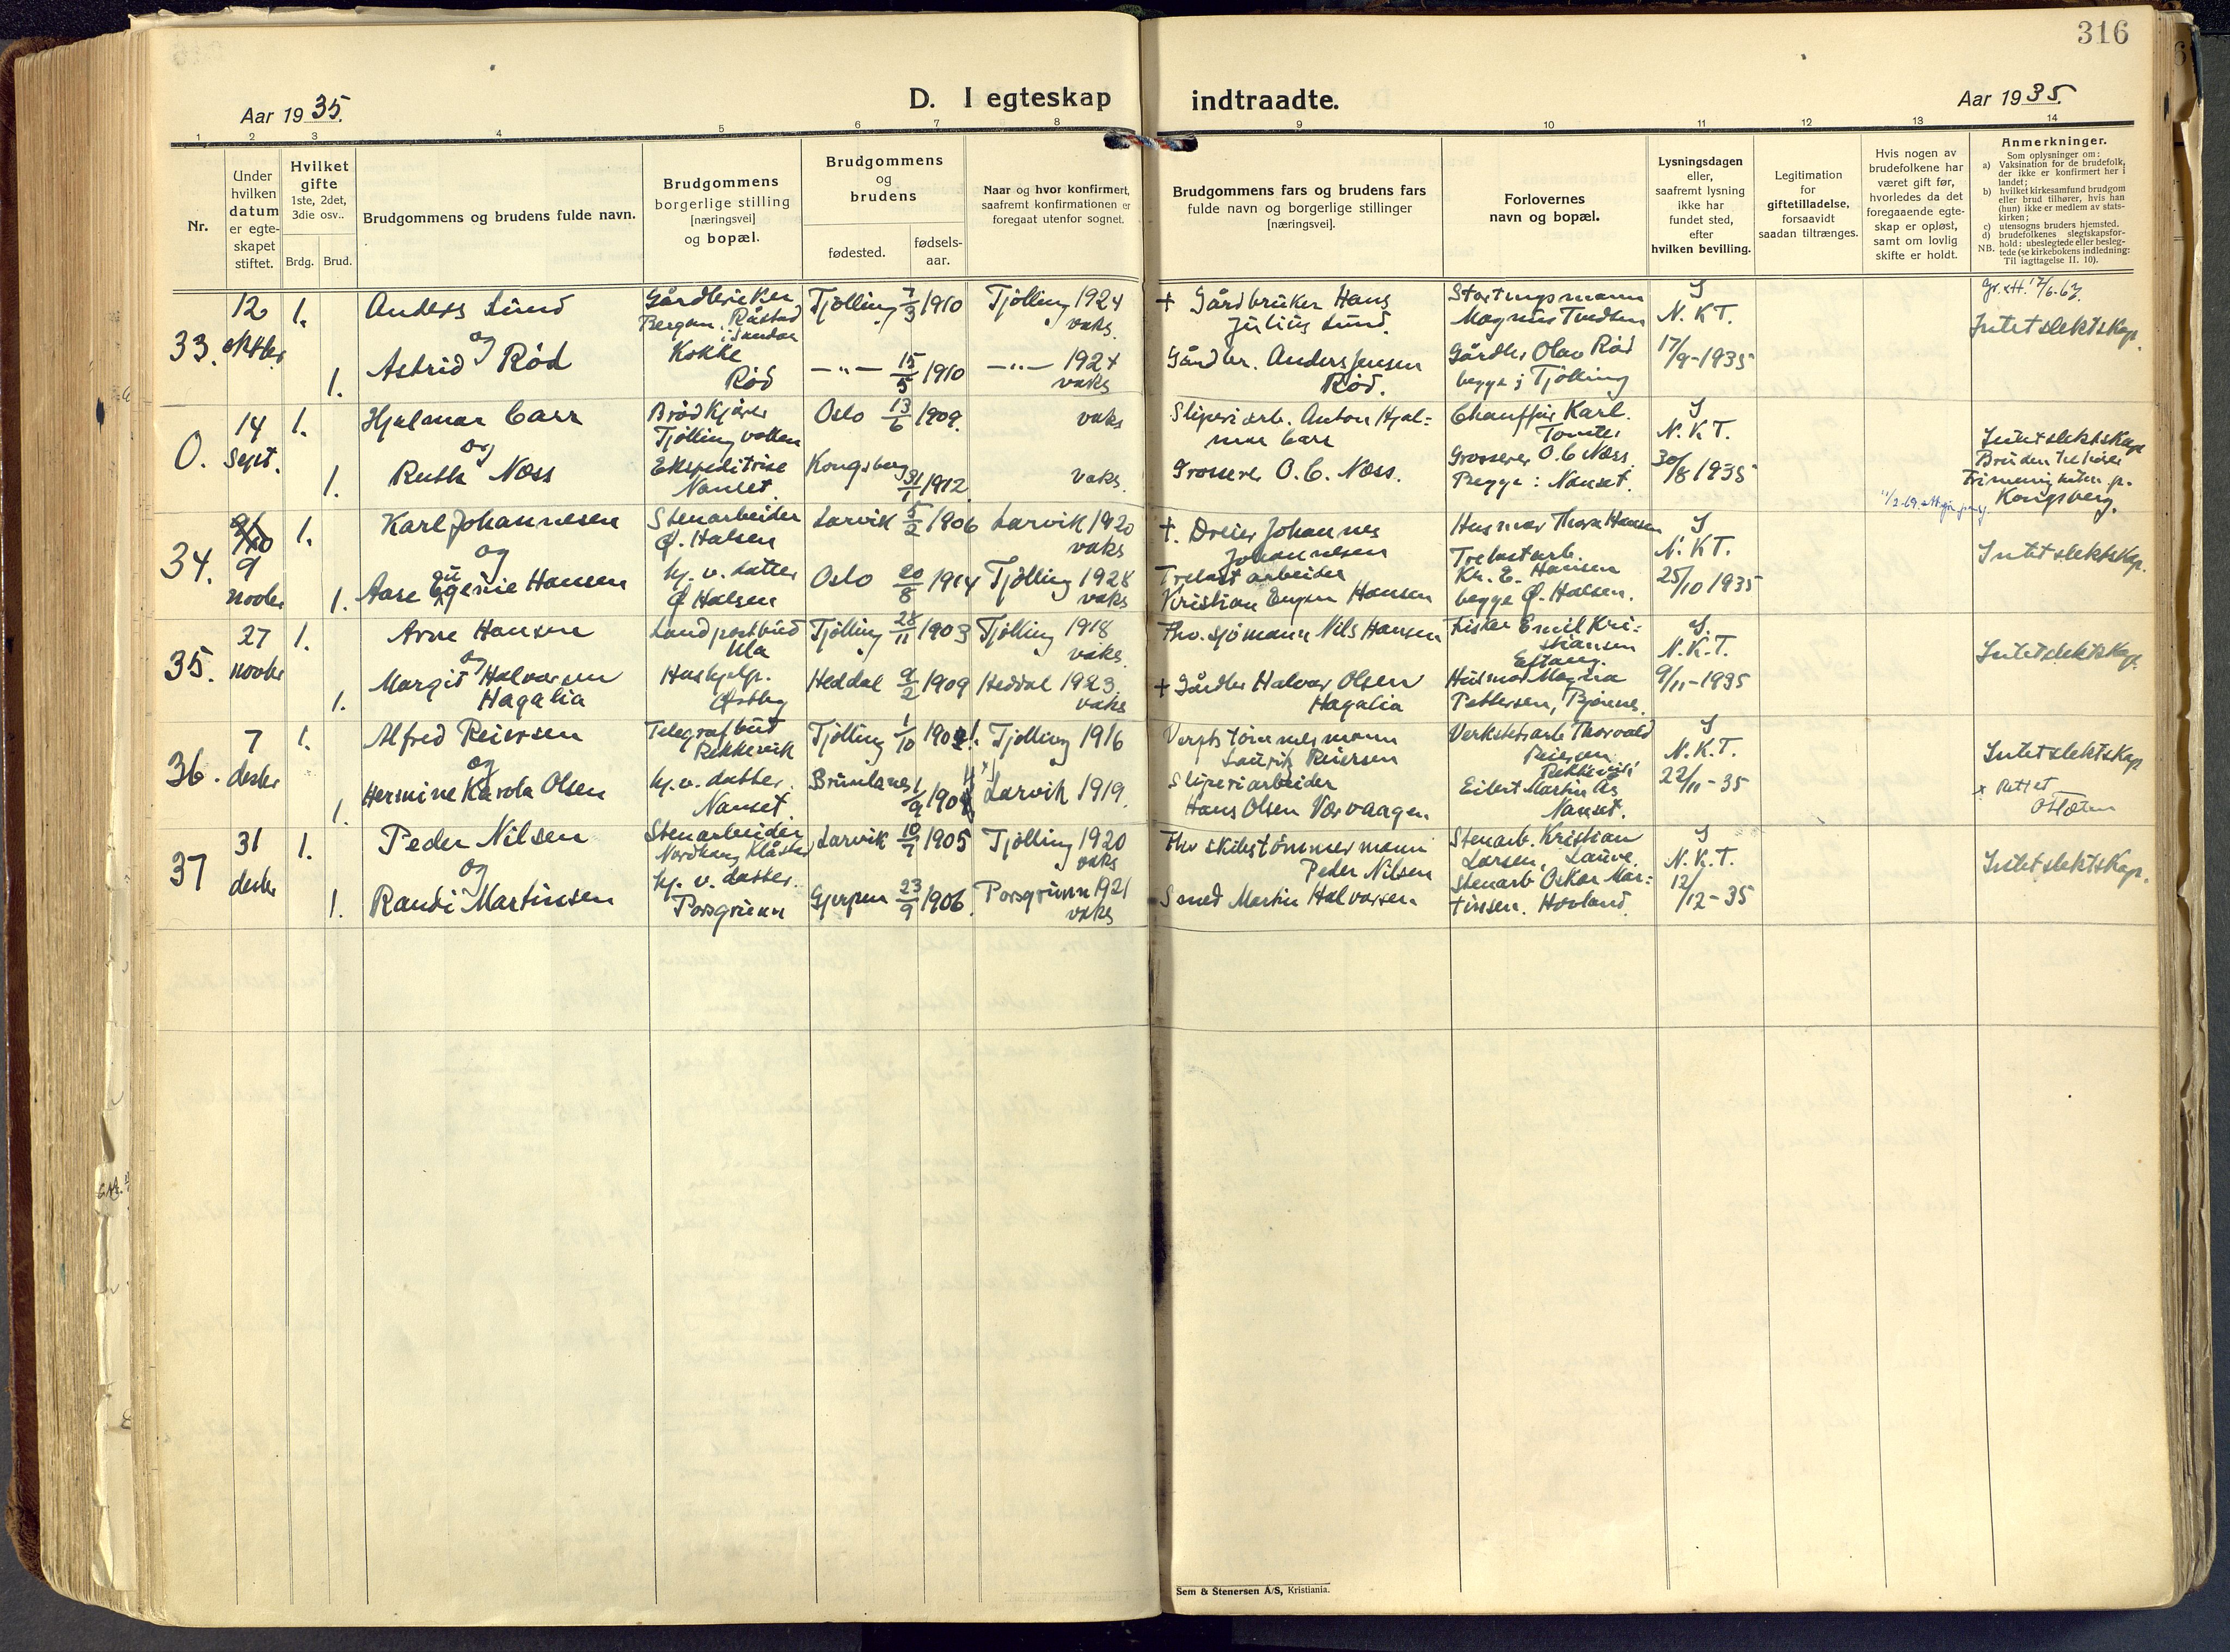 316
Aar 1935.
D. I egteskap
indtraadte.
Aar 1935.
1 2 3 4 5 6 7 8 9 10 11 12 13 14
Nr.
Under
hvilken
datum
er egte-
skapet
stiftet.
Hvilket
gifte
1ste, 2det,
3die osv..
Brdg. Brud.
Brudgommens og brudens fulde navn.
Brudgommens
borgerlige stilling
[næringsvei]
og bopæl.
Brudgommens
og
brudens
fødested.
fødsels-
aar.
Naar og hvor konfirmert,
saafremt konfirmationen er
foregaat utenfor sognet.
Brudgommens fars og brudens fars
fulde navn og borgerlige stillinger
[næringsvei].
Forlovernes
navn og bopæl.
Lysningsdagen
eller,
saafremt lysning
ikke har
fundet sted,
efter
hvilken bevilling.
Legitimation
for
giftetilladelse,
forsaavidt
saadan tiltrænges.
Hvis nogen av
brudefolkene har
været gift før,
hvorledes da det
foregaaende egte-
skap er opløst,
samt om lovlig
skifte er holdt.
Anmerkninger.
Som oplysninger om:
a) Vaksination for de brudefolk,
der ikke er konfirmert her i
landet;
b) hvilket kirkesamfund brudgom
eller brud tilhører, hvis han
(hun) ikke er medlem av stats-
kirken;
c) utensogns bruders hjemsted.
d) brudefolkenes slegtskapsfor-
hold: ubeslegtede eller besleg-
NB. tede (se kirkebokens indledning:
Til iagttagelse II. 10).
33.
12
oktbr
1.
Anders Lund
og
1.
Astrid Rød
Gårdbruker
Bergan, Råstad
i Sandar
Kokke
Rød
Tjølling 7/3 1910
Tjølling 1924
vaks.
—"— 15/5 1910
—"— 1924
vaks
+ Gårdbruker Hans
Julius Lund.
Gårdbr. Anders Jensen
Rød.
Stortingsmann
Magnus
Gårdbr Olav Rød
begge i Tjølling
I
N. K T.
17/9-1935
Intet slektskap.
0.
14
Sept.
1.
Hjalmar Carr
og
1.
Ruth Næss
Brødkjører
Tjøllingvollen
Ekspeditrise
Nanset.
Oslo 13/6 1909.
vaks
Kongsberg
31/1 1912
vaks.
Sliperiarb. Anton Hjal-
mar Carr
Grosserer O. C. Næss.
Chauffør Karl
Tomter
Grosserer O. C Næss
Begge: Nanset.
I
N. K T.
30/8 1935
Intet slektskap
Bruden tilhører
Frimenigheten p.
Kongsberg.
34.
9
novbr
1.
Karl Johannesen
og
1.
Aase Eugenie Hansen
Stenarbeider
Ø. Halsen
hj. v. datter
Ø Halsen
Larvik 5/2 1906
Larvik 1920
vaks
Oslo 20/8 1914
Tjølling 1928
vaks
+. Dreier Johannes
Johannesen
Trelastarbeider
Kristian Eugen Hansen
Husmor Thora Hansen
Trelastarb.
Kr. E. Hansen
begge Ø. Halsen.
I
N. KT.
25/10 1935
Intet slektskap.
35.
27
novbr
1.
Arne Hansen
og
1.
Margit Halvorsen
Hagalia
Landpostbud
Ula
Hushjelp.
Østby
Tjølling 28/11 1903
Tjølling 1918
vaks.
Heddal 9/2 1909
Heddal 1923.
vaks
Fhv. sjømann Nils Hansen
+ Gårdbr Halvor Olsen
Hagalia
Fisker Emil Kri-
stiansen
Eftang.
Husmor Magna
Pettersen, Bjønnes.
I.
N.K.T.
9/11-1935
Intet slektskap.
36.
7
desbr
1.
Alfred Reiersen
og
1.
Hermine Karola Olsen
Telegrafbud
Rekkevik
hj. v. datter.
Nanset.
Tjølling 1/10 1901.
Tjølling 1916
Brunlanes
Larvik 1919.
Verftstømmermann
Lauritz Reiersen
Sliperiarbeider
Hans Olsen Værvaagen
Verkstedsarb Thorvald
Reiersen
Rekkevik
Eilert Martin Ås
Nanset.
I
N.K.T.
22/11-35
Intet slektskap
x Rettet
37
31
desbr
1.
Peder Nilsen
og
1.
Randi Martinsen
Stenarbeider
Nordhaug Klåstad
hj. v. datter.
Porsgrunn
Larvik 10/7 1905
Tjølling 1920
vaks
Gjerpen 23/9 1906.
Porsgrunn 1921
vaks
Fhv skibstømmermann
Peder Nilsen
Smed Martin Halvorsen
Stenarb. Kristian
Larsen, Lauve.
Stenarb Oskar Mar-
tinsen. Hovland.
I
N. K. T.
12/12-35
Intet slektskap.
Sem & Stenersen A/S, Kristiania.